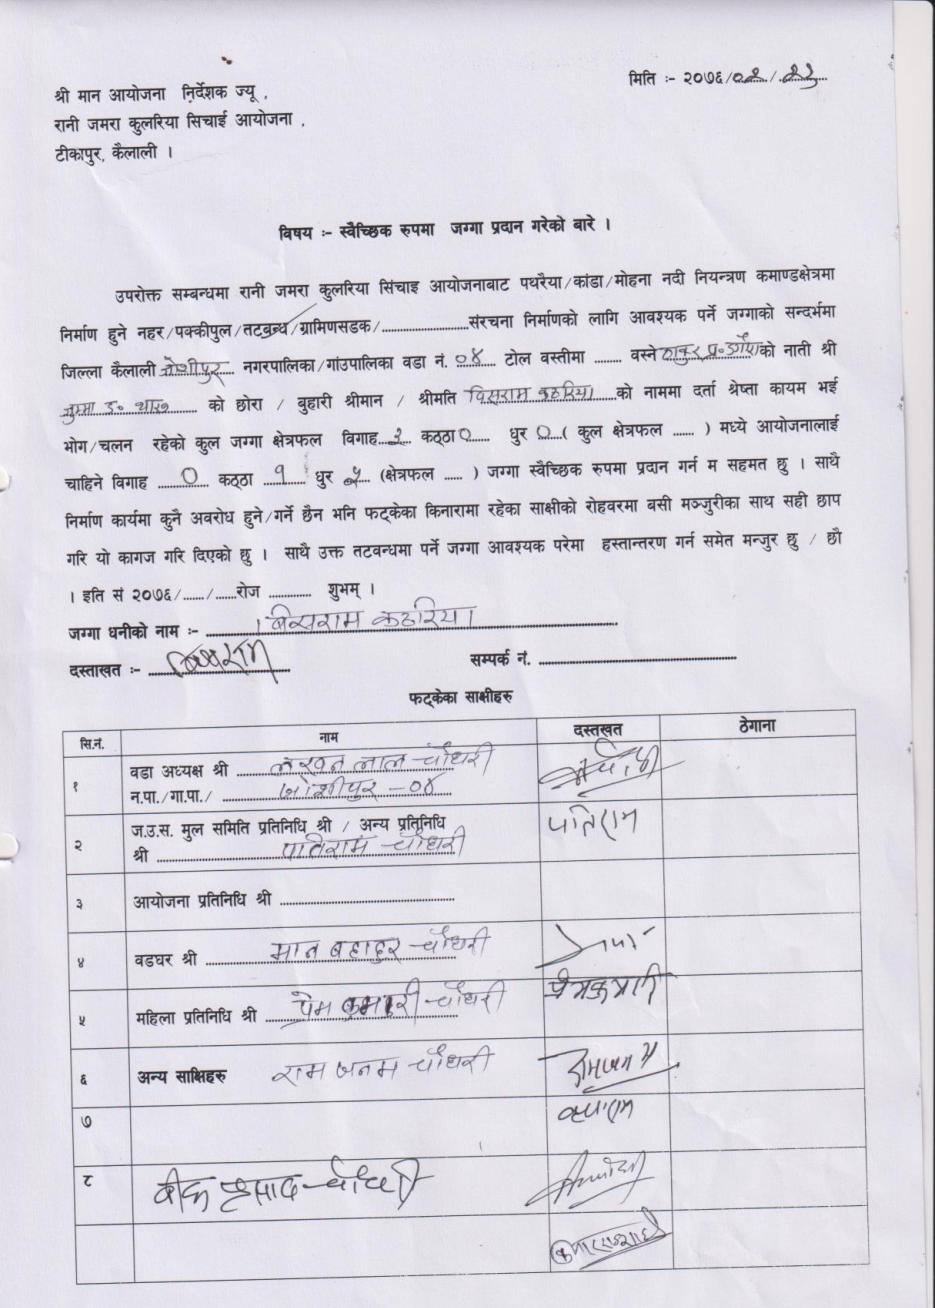 मिति :- २०७६/०२/२३
श्री मान आयोजना निर्देशक ज्यू ,
रानी जमरा कुलरिया सिचाई आयोजना ,
टीकापुर, कैलाली ।
विषय :- स्वैच्छिक रुपमा जग्गा प्रदान गरेको बारे ।
उपरोक्त सम्बन्धमा रानी जमरा कुलरिया सिंचाइ आयोजनाबाट पथरैया/कांडा/मोहना नदी नियन्त्रण कमाण्डक्षेत्रमा
निर्माण हुने नहर/पक्कीपुल/तटबन्ध/ग्रामिणसडक/........................संरचना निर्माणको लागि आवश्यक पर्ने जग्गाको सन्दर्भमा
जिल्ला कैलाली जोशीपुर नगरपालिका/गांउपालिका वडा नं. ०४ टोल वस्तीमा ........ वस्ने ठाकुर प्र. को नाती श्री
को छोरा / बुहारी श्रीमान / श्रीमति विसराम कठरिया को नाममा दर्ता श्रेष्ता कायम भई
भोग/चलन रहेको कुल जग्गा क्षेत्रफल विगाह २ कठ्ठा ० धुर ० ( कुल क्षेत्रफल ...... ) मध्ये आयोजनालाई
चाहिने विगाह ० कठ्ठा १ धुर (क्षेत्रफल ..... ) जग्गा स्वैच्छिक रुपमा प्रदान गर्न म सहमत छु । साथै
निर्माण कार्यमा कुनै अवरोध हुने/गर्ने छैन भनि फट्केका किनारामा रहेका साक्षीको रोहवरमा बसी मञ्जुरीका साथ सही छाप
गरि यो कागज गरि दिएको छु । साथै उक्त तटवन्धमा पर्ने जग्गा आवश्यक परेमा हस्तान्तरण गर्न समेत मन्जुर छु / छौ
। इति सं २०७६/....../......रोज ............ शुभम् ।
जग्गा धनीको नाम :- बिसराम कठरिया
दस्ताखत :- बिसराम सम्पर्क नं. ........................................
फट्केका साक्षीहरु
सि.नं. नाम दस्तखत ठेगाना
१ वडा अध्यक्ष श्री लखन लाल चौधरी
न.पा./गा.पा./ जोशीपुर -०४
२ ज.उ.स. मुल समिति प्रतिनिधि श्री / अन्य प्रतिनिधि
श्री पातिराम चौधरी पतिराम
३ आयोजना प्रतिनिधि श्री ........................................
४ वडघर श्री मान बहादुर चौधरी
५ महिला प्रतिनिधि श्री प्रेम कुमारी चौधरी प्रेमकुमारी
६ अन्य साक्षिहरु राम जनम चौधरी
७
८ प्रसाद चौधरी